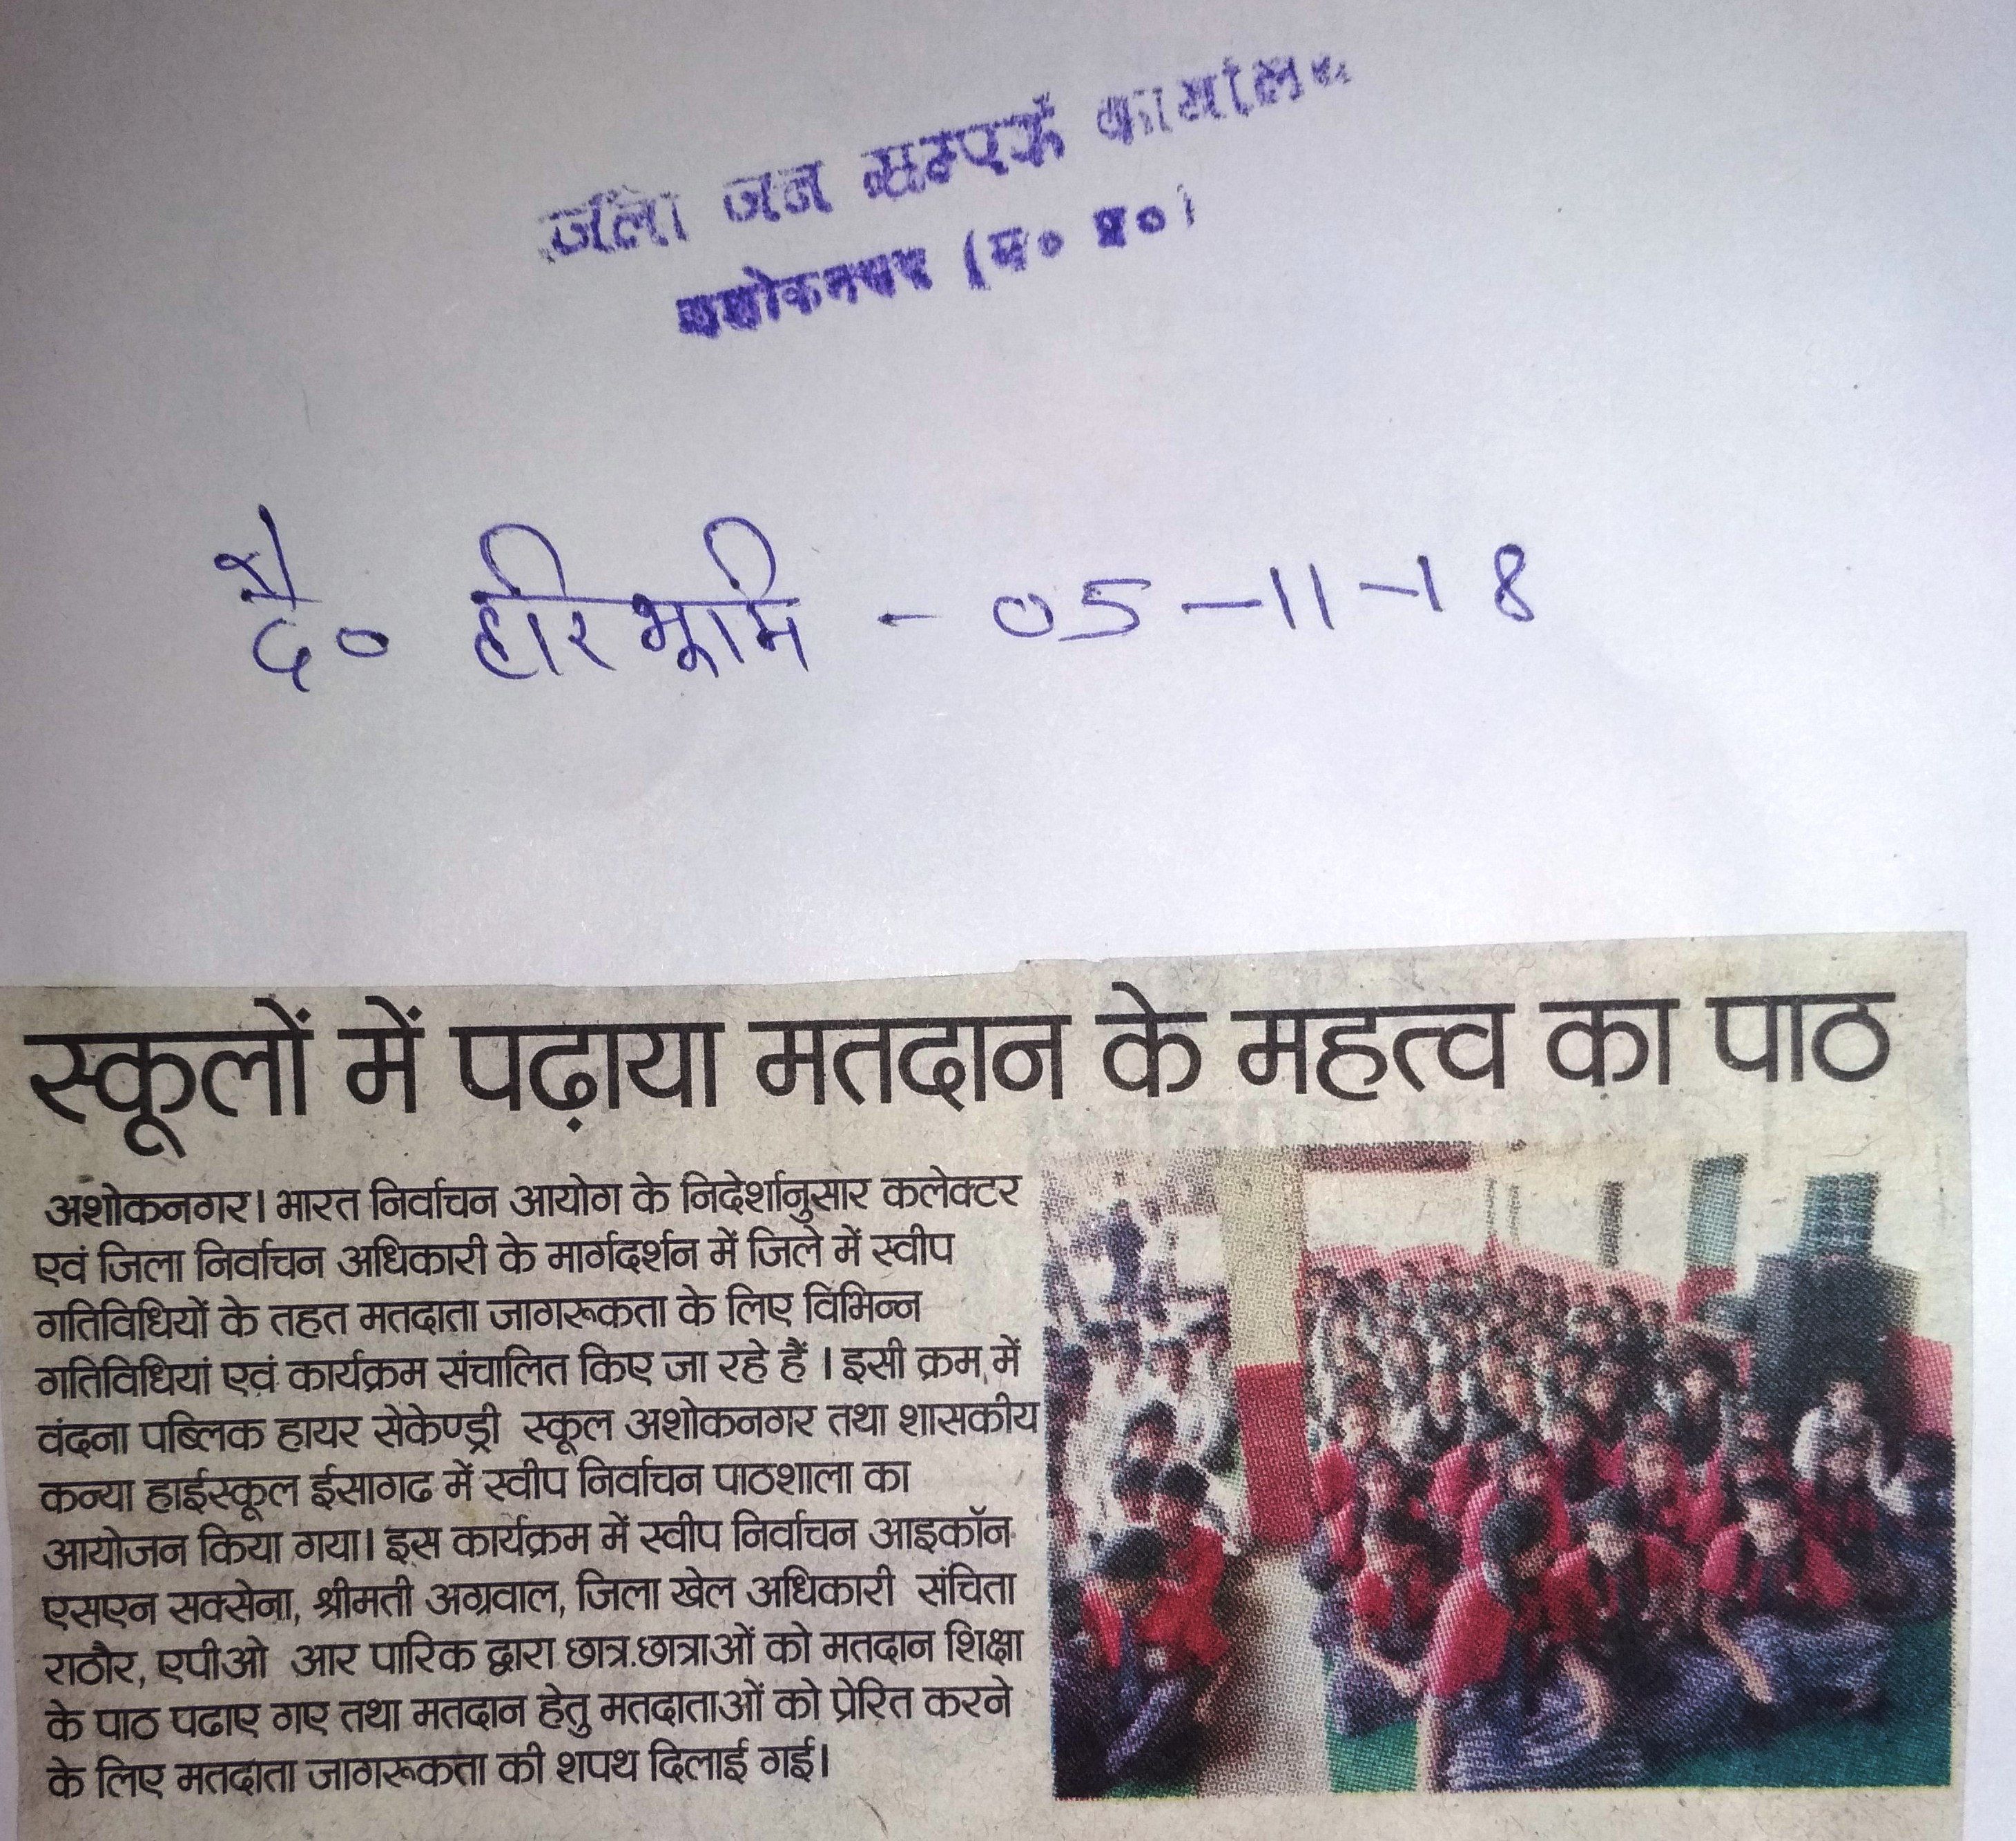 जिला जन सम्पर्क कार्यालय
अशोकनगर (म० प्र०)
दै० हरिभूमि - 05-11-18
स्कूलों में पढ़ाया मतदान के महत्व का पाठ
अशोकनगर। भारत निर्वाचन आयोग के निदेर्शानुसार कलेक्टर
एवं जिला निर्वाचन अधिकारी के मार्गदर्शन में जिले में स्वीप
गतिविधियों के तहत मतदाता जागरूकता के लिए विभिन्न
गतिविधियां एवं कार्यक्रम संचालित किए जा रहे हैं । इसी क्रम में
वंदना पब्लिक हायर सेकेण्ड्री स्कूल अशोकनगर तथा शासकीय
कन्या हाईस्कूल ईसागढ में स्वीप निर्वाचन पाठशाला का
आयोजन किया गया। इस कार्यक्रम में स्वीप निर्वाचन आइकॉन
एसएन सक्सेना, श्रीमती अग्रवाल, जिला खेल अधिकारी संचिता
राठौर, एपीओ आर पारिक द्वारा छात्र.छात्राओं को मतदान शिक्षा
के पाठ पढाए गए तथा मतदान हेतु मतदाताओं को प्रेरित करने
के लिए मतदाता जागरूकता की शपथ दिलाई गई।